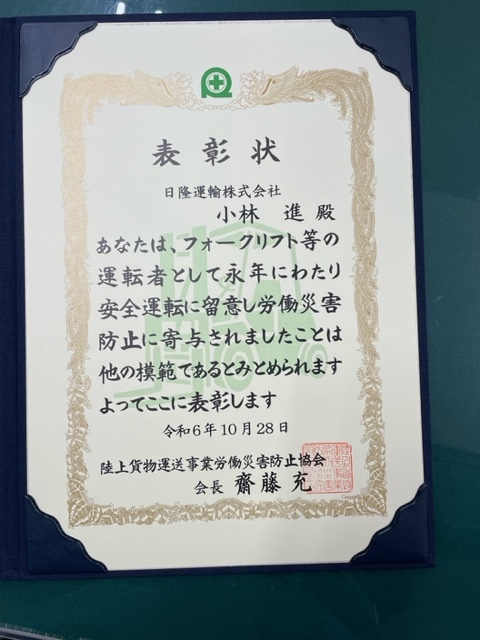 表彰状
日隆運輸株式会社
小林 進 殿
あなたは、フォークリフト等の
運転者として永年にわたり
安全運転に留意し労働災害
防止に寄与されましたことは
他の模範であるとみとめられます
よってここに表彰します
令和6年10月28日
陸上貨物運送事業労働災害防止協会
会長 齋藤 充